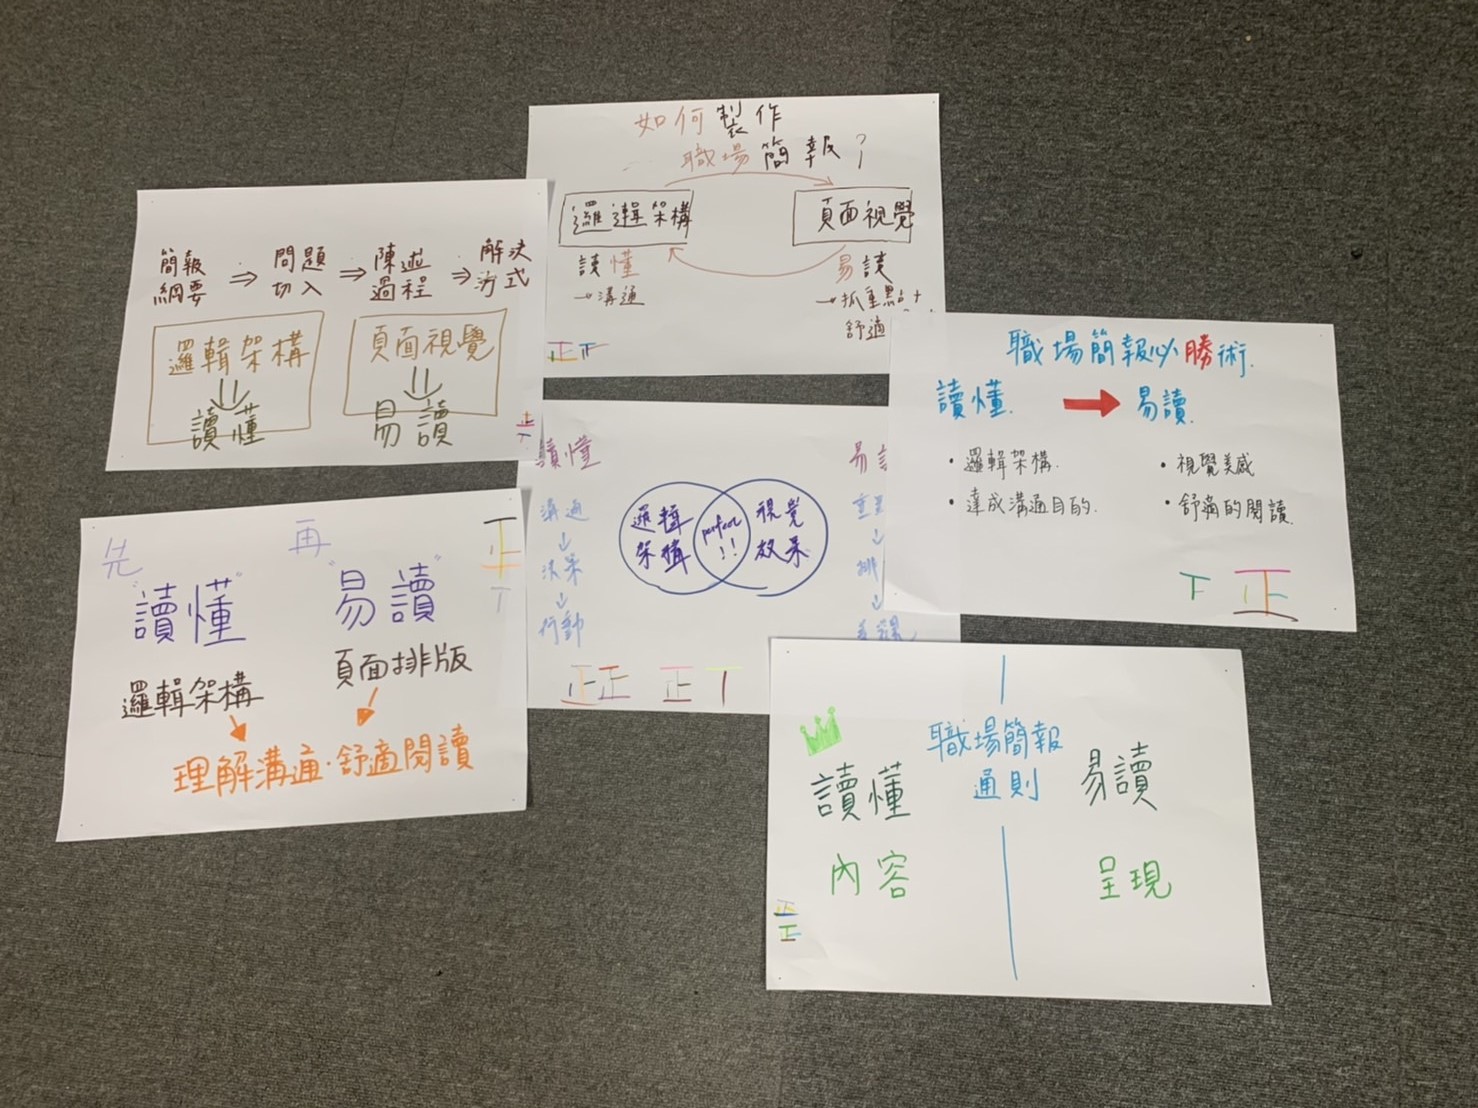 如何製作
職場簡報？
邏輯架構
頁面視覺
讀懂
→溝通
易讀
→抓重點+
舒適
正
簡報綱要 ⇒ 問題切入 ⇒ 陳述過程 ⇒ 解決方式
邏輯架構
讀懂
頁面視覺
易讀
正
職場簡報必勝術.
讀懂. → 易讀.
・邏輯架構.
・達成溝通目的.
・視覺美感
・舒適的閱讀.
正
讀懂
溝通
↓
決策
↓
行動
邏輯架構
perfect!!
視覺效果
易
排
正正 正
先 再
"讀懂" "易讀"
邏輯架構
頁面排版
理解溝通・舒適閱讀
正
職場簡報
通則
讀懂
內容
易讀
呈現
正
正